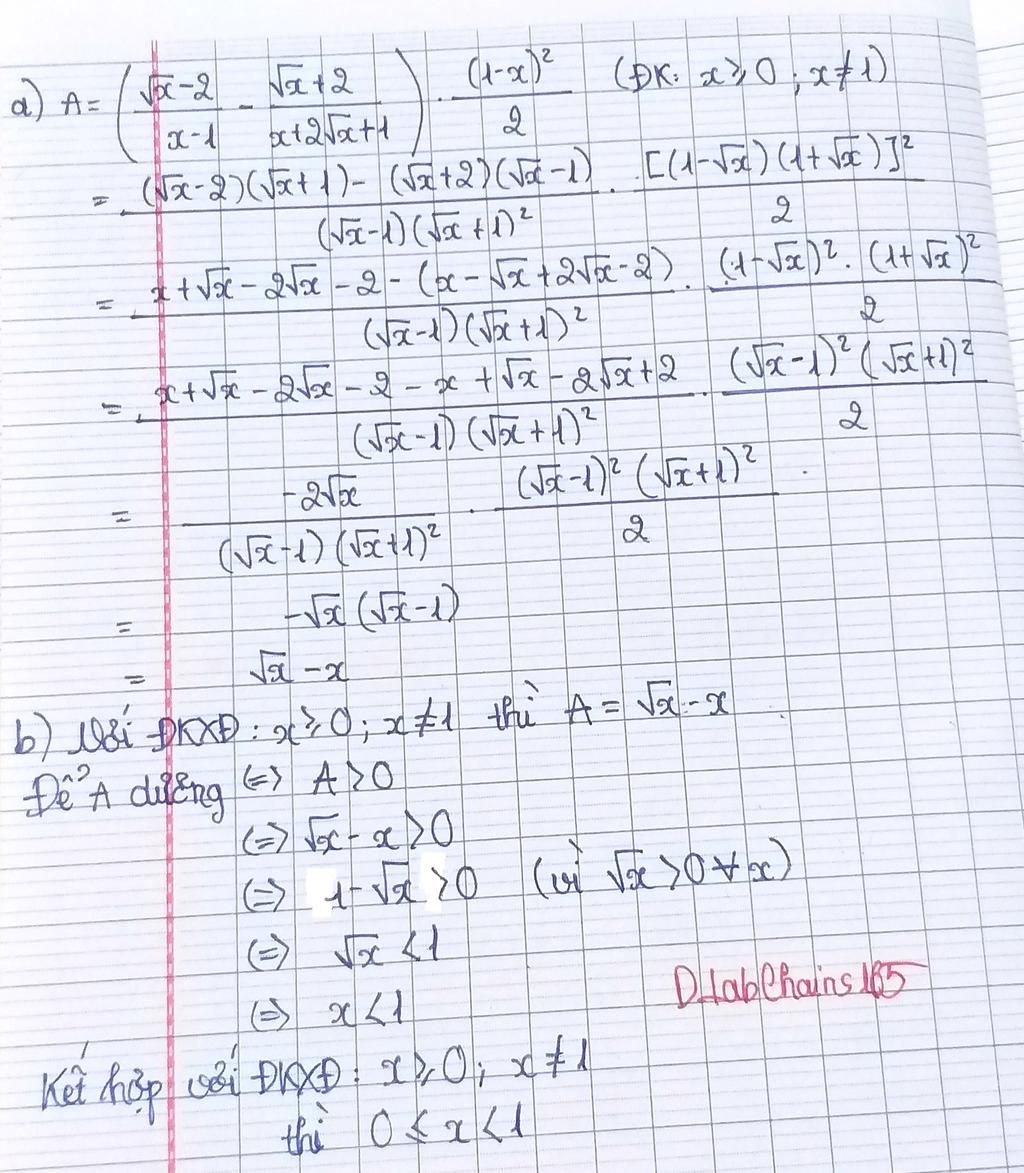 a) A = ( (√x-2)/(x-1) - (√x+2)/(x+2√x+1) ) . (1-x)²/2 (ĐK: x ≥ 0 ; x ≠ 1)
= ((√x-2)(√x+1) - (√x+2)(√x-1))/((√x-1)(√x+1)²) . [(1-√x)(1+√x)]²/2
= (x+√x-2√x-2-(x-√x+2√x-2))/((√x-1)(√x+1)²) . ((1-√x)².(1+√x)²)/2
= (x+√x-2√x-2-x+√x-2√x+2)/((√x-1)(√x+1)²) . ((√x-1)²(√x+1)²)/2
= (-2√x)/((√x-1)(√x+1)²) . ((√x-1)²(√x+1)²)/2
= -√x(√x-1)
= √x - x
b) Với ĐKXĐ: x ≥ 0; x ≠ 1 thì A = √x - x
Để A dương <=> A > 0
<=> √x - x > 0
<=> 1 - √x > 0 (vì √x > 0 ∀ x)
<=> √x < 1
<=> x < 1
DtabChains165
Kết hợp với ĐKXĐ: x ≥ 0; x ≠ 1
thì 0 ≤ x < 1